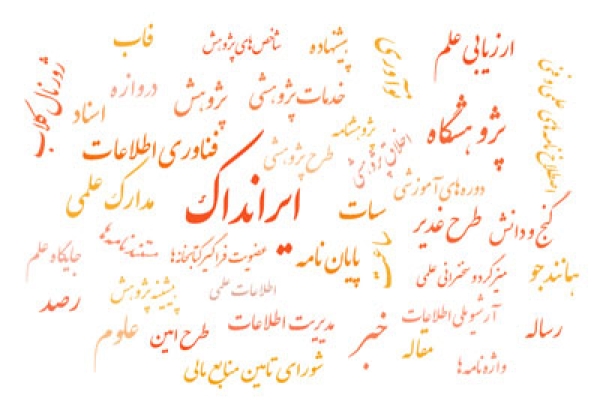 ارزیابی علم
پیشنهاده
شاخص‌های پژوهش
فاب
نوآوری
ژورنال کلاب
خدمات پژوهشی
پژوهش
دروازه
اسناد
پژوهشگاه
پژوهشنامه
اخلاق پژوهشی
طرح پژوهشی
فناوری اطلاعات
ایرانداک
مدارک علمی
دوره‌های آموزشی
سات
گنج و دانش
طرح غدیر
پایان نامه
عضویت فراگیر کتابخانه‌ها
مستندنامه‌ها
جایگاه علم
همانندجو
میزگرد و سخنرانی علمی
اطلاعات علمی
پیشینه پژوهش
رصد
رساله
آرشیو ملی اطلاعات
خبر
مدیریت اطلاعات
طرح امین
علوم
مقاله
واژه‌نامه‌ها
شورای تامین منابع مالی